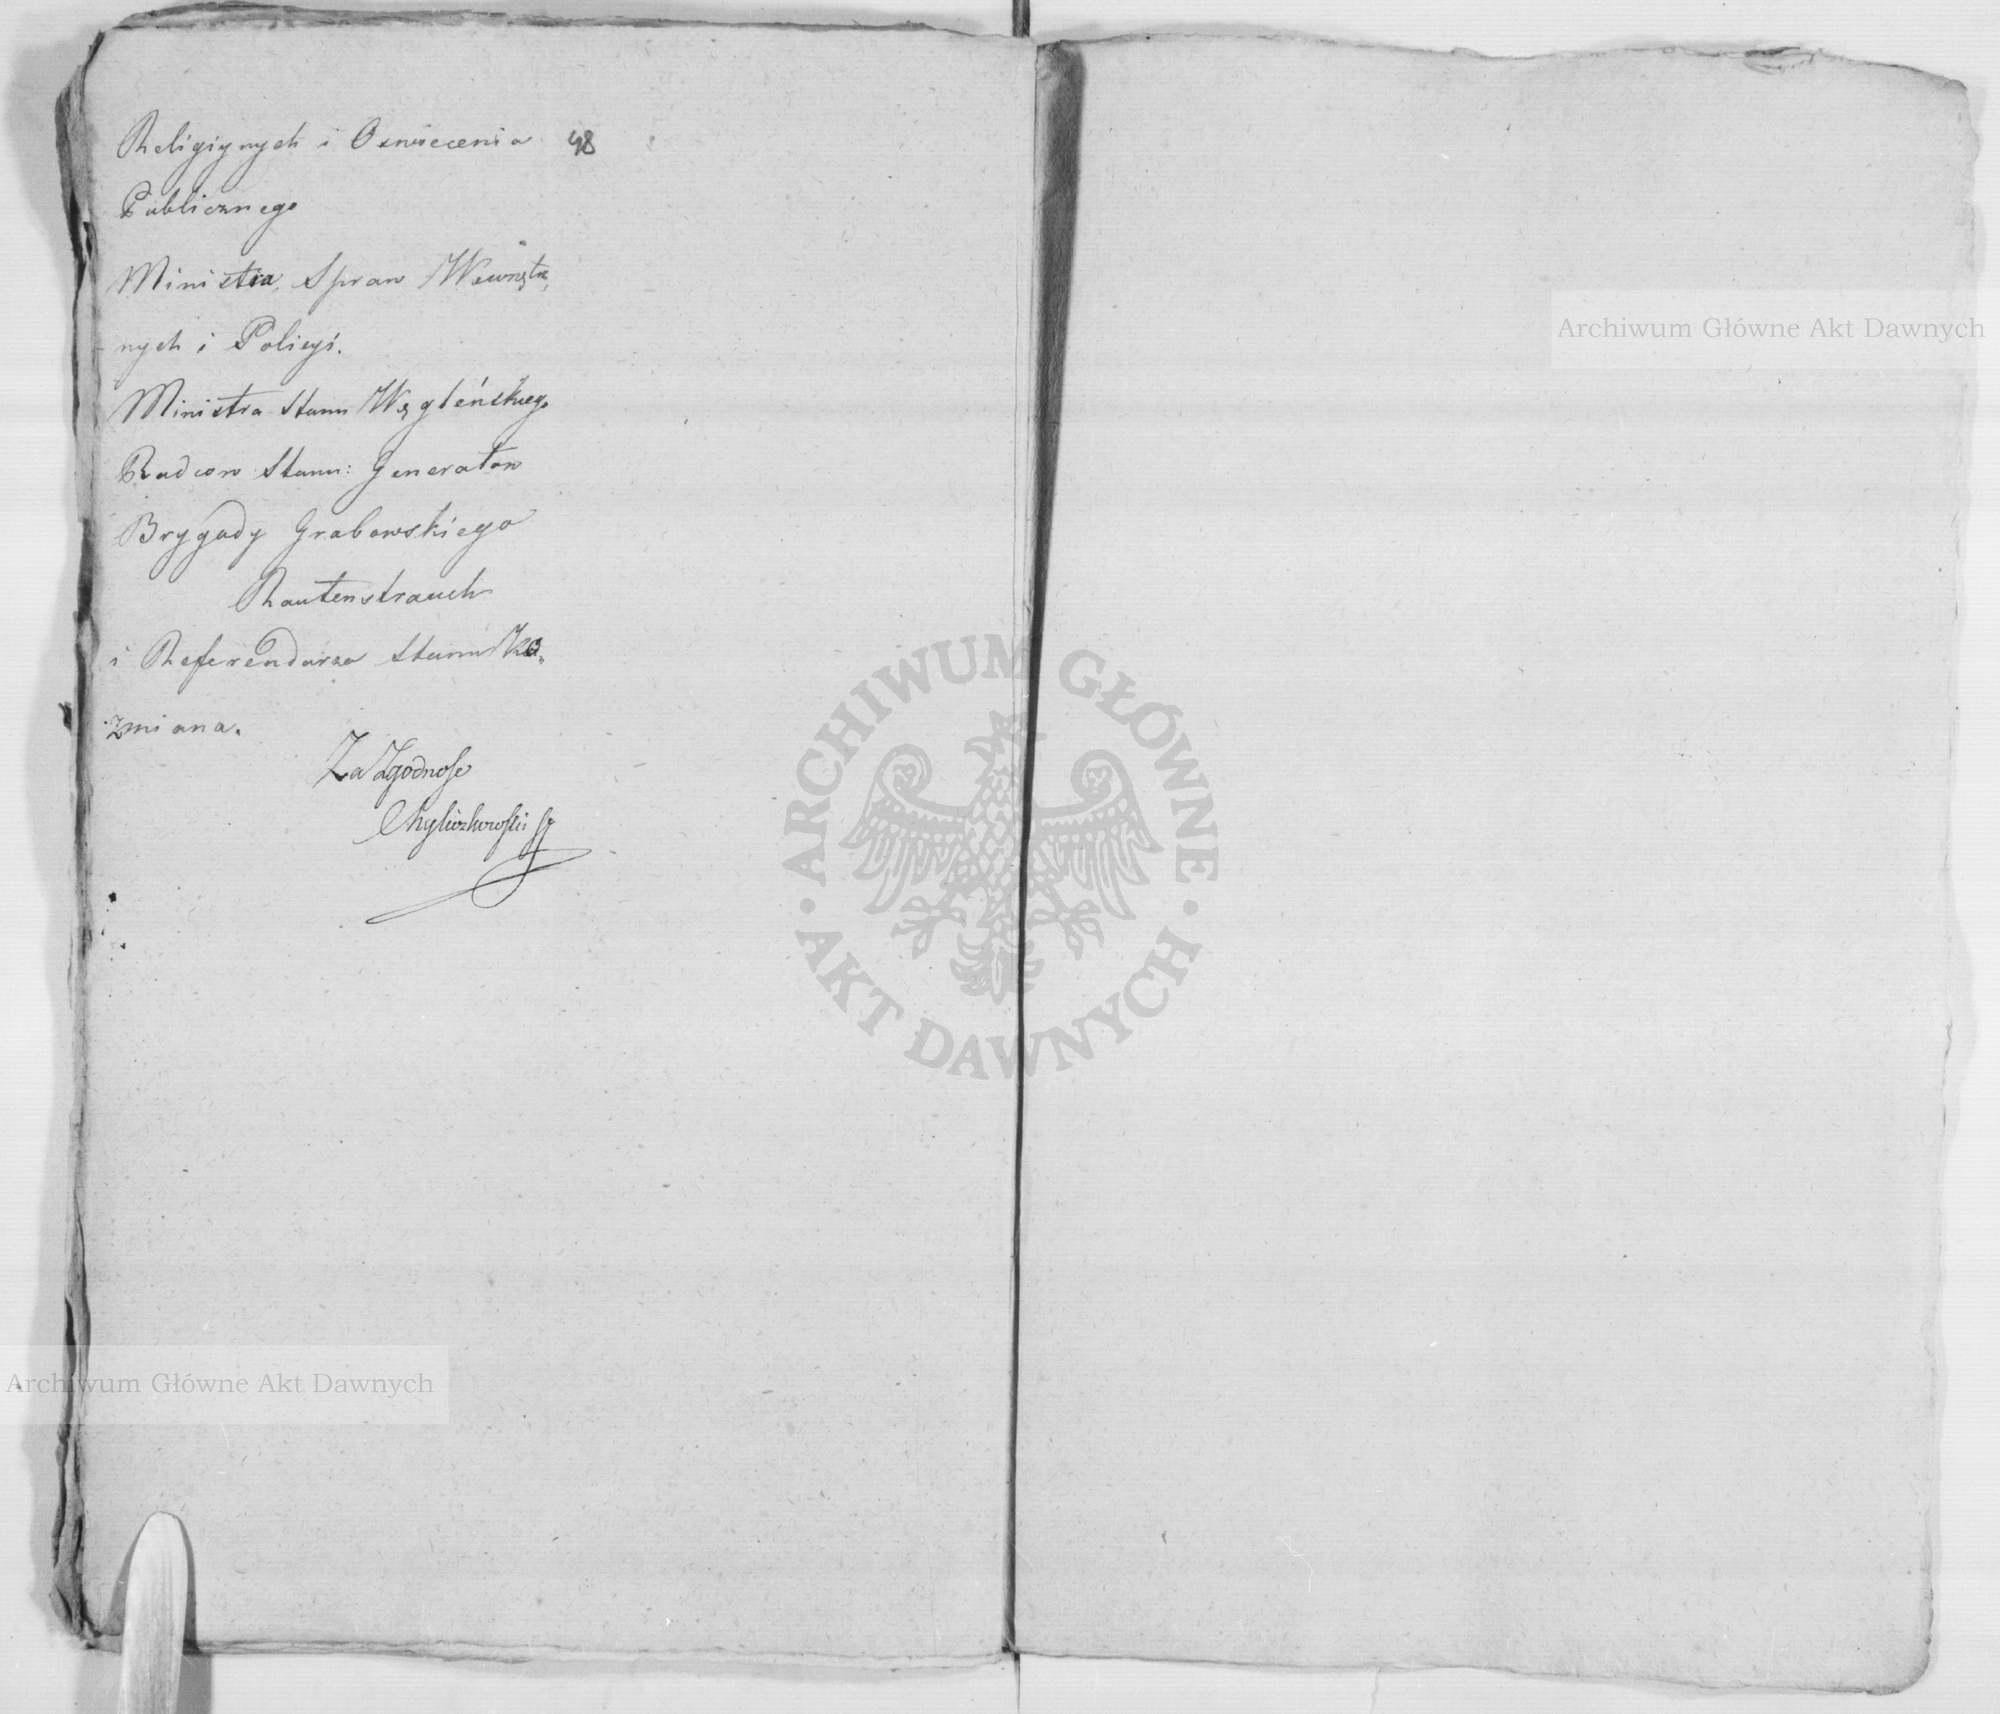 Religiynych i Oswiecenia 48
Publicznego
Ministra Spraw Wewnętrz,
nych i Policyi.
Ministra Stanu Węgleńskiego
Radcow Stanu: Generałow
Brygady Grabowskiego
Rautenstrauch
i Referendarza Stanu Ko,
zmiana.
Za Zgodnosc
ARCHIWUM GŁÓWNE AKT DAWNYCH
Archiwum Główne Akt Dawnych
Archiwum Główne Akt Dawnych